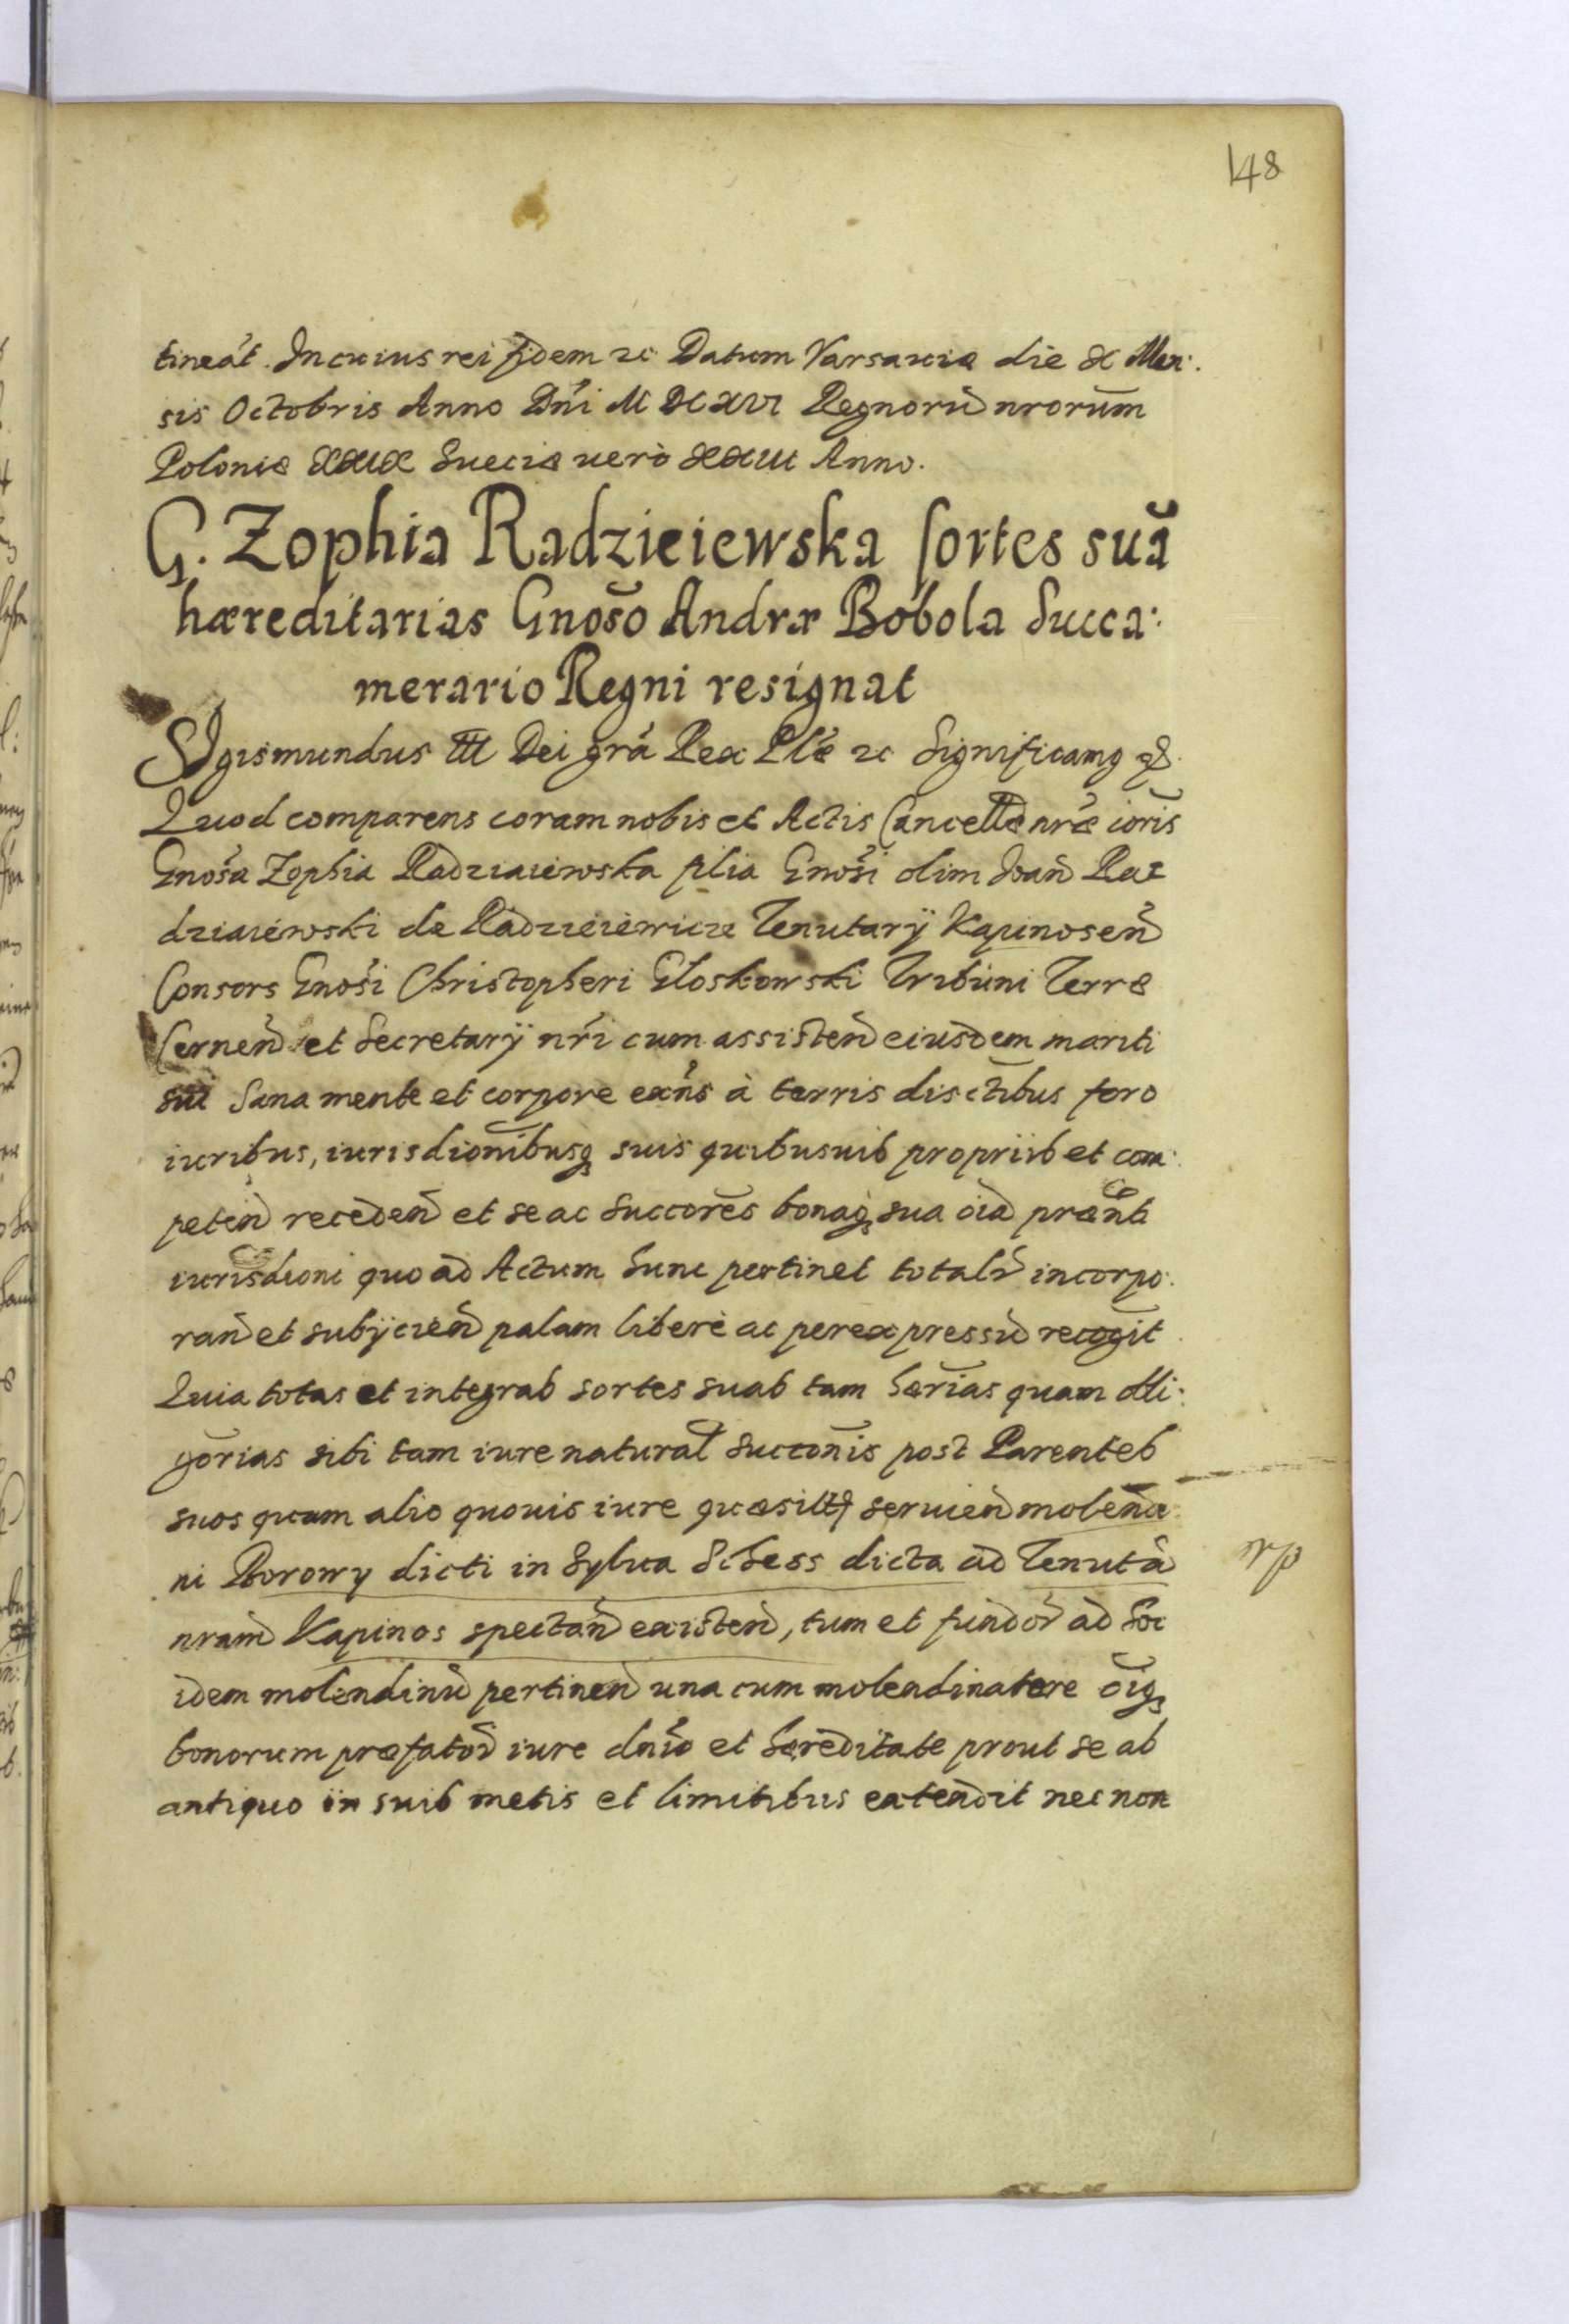 148
tineãt. In cuius rei fidem ꝛc Datum Varsaviæ die X Men:
sis Octobris Anno Dñi M DC XVI Regnorũ nrorũm
Poloniæ XXIX Sueciæ verò XXIII Anno.
G. Zophia Radzieiewska sortes suã
hæreditarias Gnõso Andræ Bobola Succa:
merario Regni resignat
Sigismundus III Dei grã Rex Plæ ꝛc Significamꝰ
Quod comparens coram nobis et Actis Cancell nræ ioris
Gnõsa Zophia Radziaiewska filia Gnõsi olim Joañ Ra=
dziaiewski de Radzieiewicze Tenutarÿ Kapinoseñ
Consors Gnõsi Christopheri Gloskowski Tribuni Terræ
Cerneñ et Secretarÿ nri cum assisteñ eiusdem mariti
sui sana mente et corpore exñs à terris disctibus foro
iuribus, iurisdionibusꝗ suis quibusuis propriis et com:
peteñ recedeñ et se ac succores bonaꝗ sua oĩa prænti
iurisdioni quo ad Actum hunc pertinet totalr incorpo:
rañ et subÿcieñ palam liberè ac per expressũ recogit
Quia totas et integras sortes suas tam hærias quam obli:
gorias sibi tam iure natural succonis post Parentes
suos quam alio quouis iure quæsit seruieñ molendi
ni Borowy dicti in Sylva Schess dicta ad Tenutã
nram Kapinos spectañ existeñ, tum et fundor ad hoc
idem molendinũ pertineñ una cum molendinatore oĩꝗ
bonorum præfator iure dnio et hæreditate prout se ab
antiquo in suis metis et limitibus extendit nec non